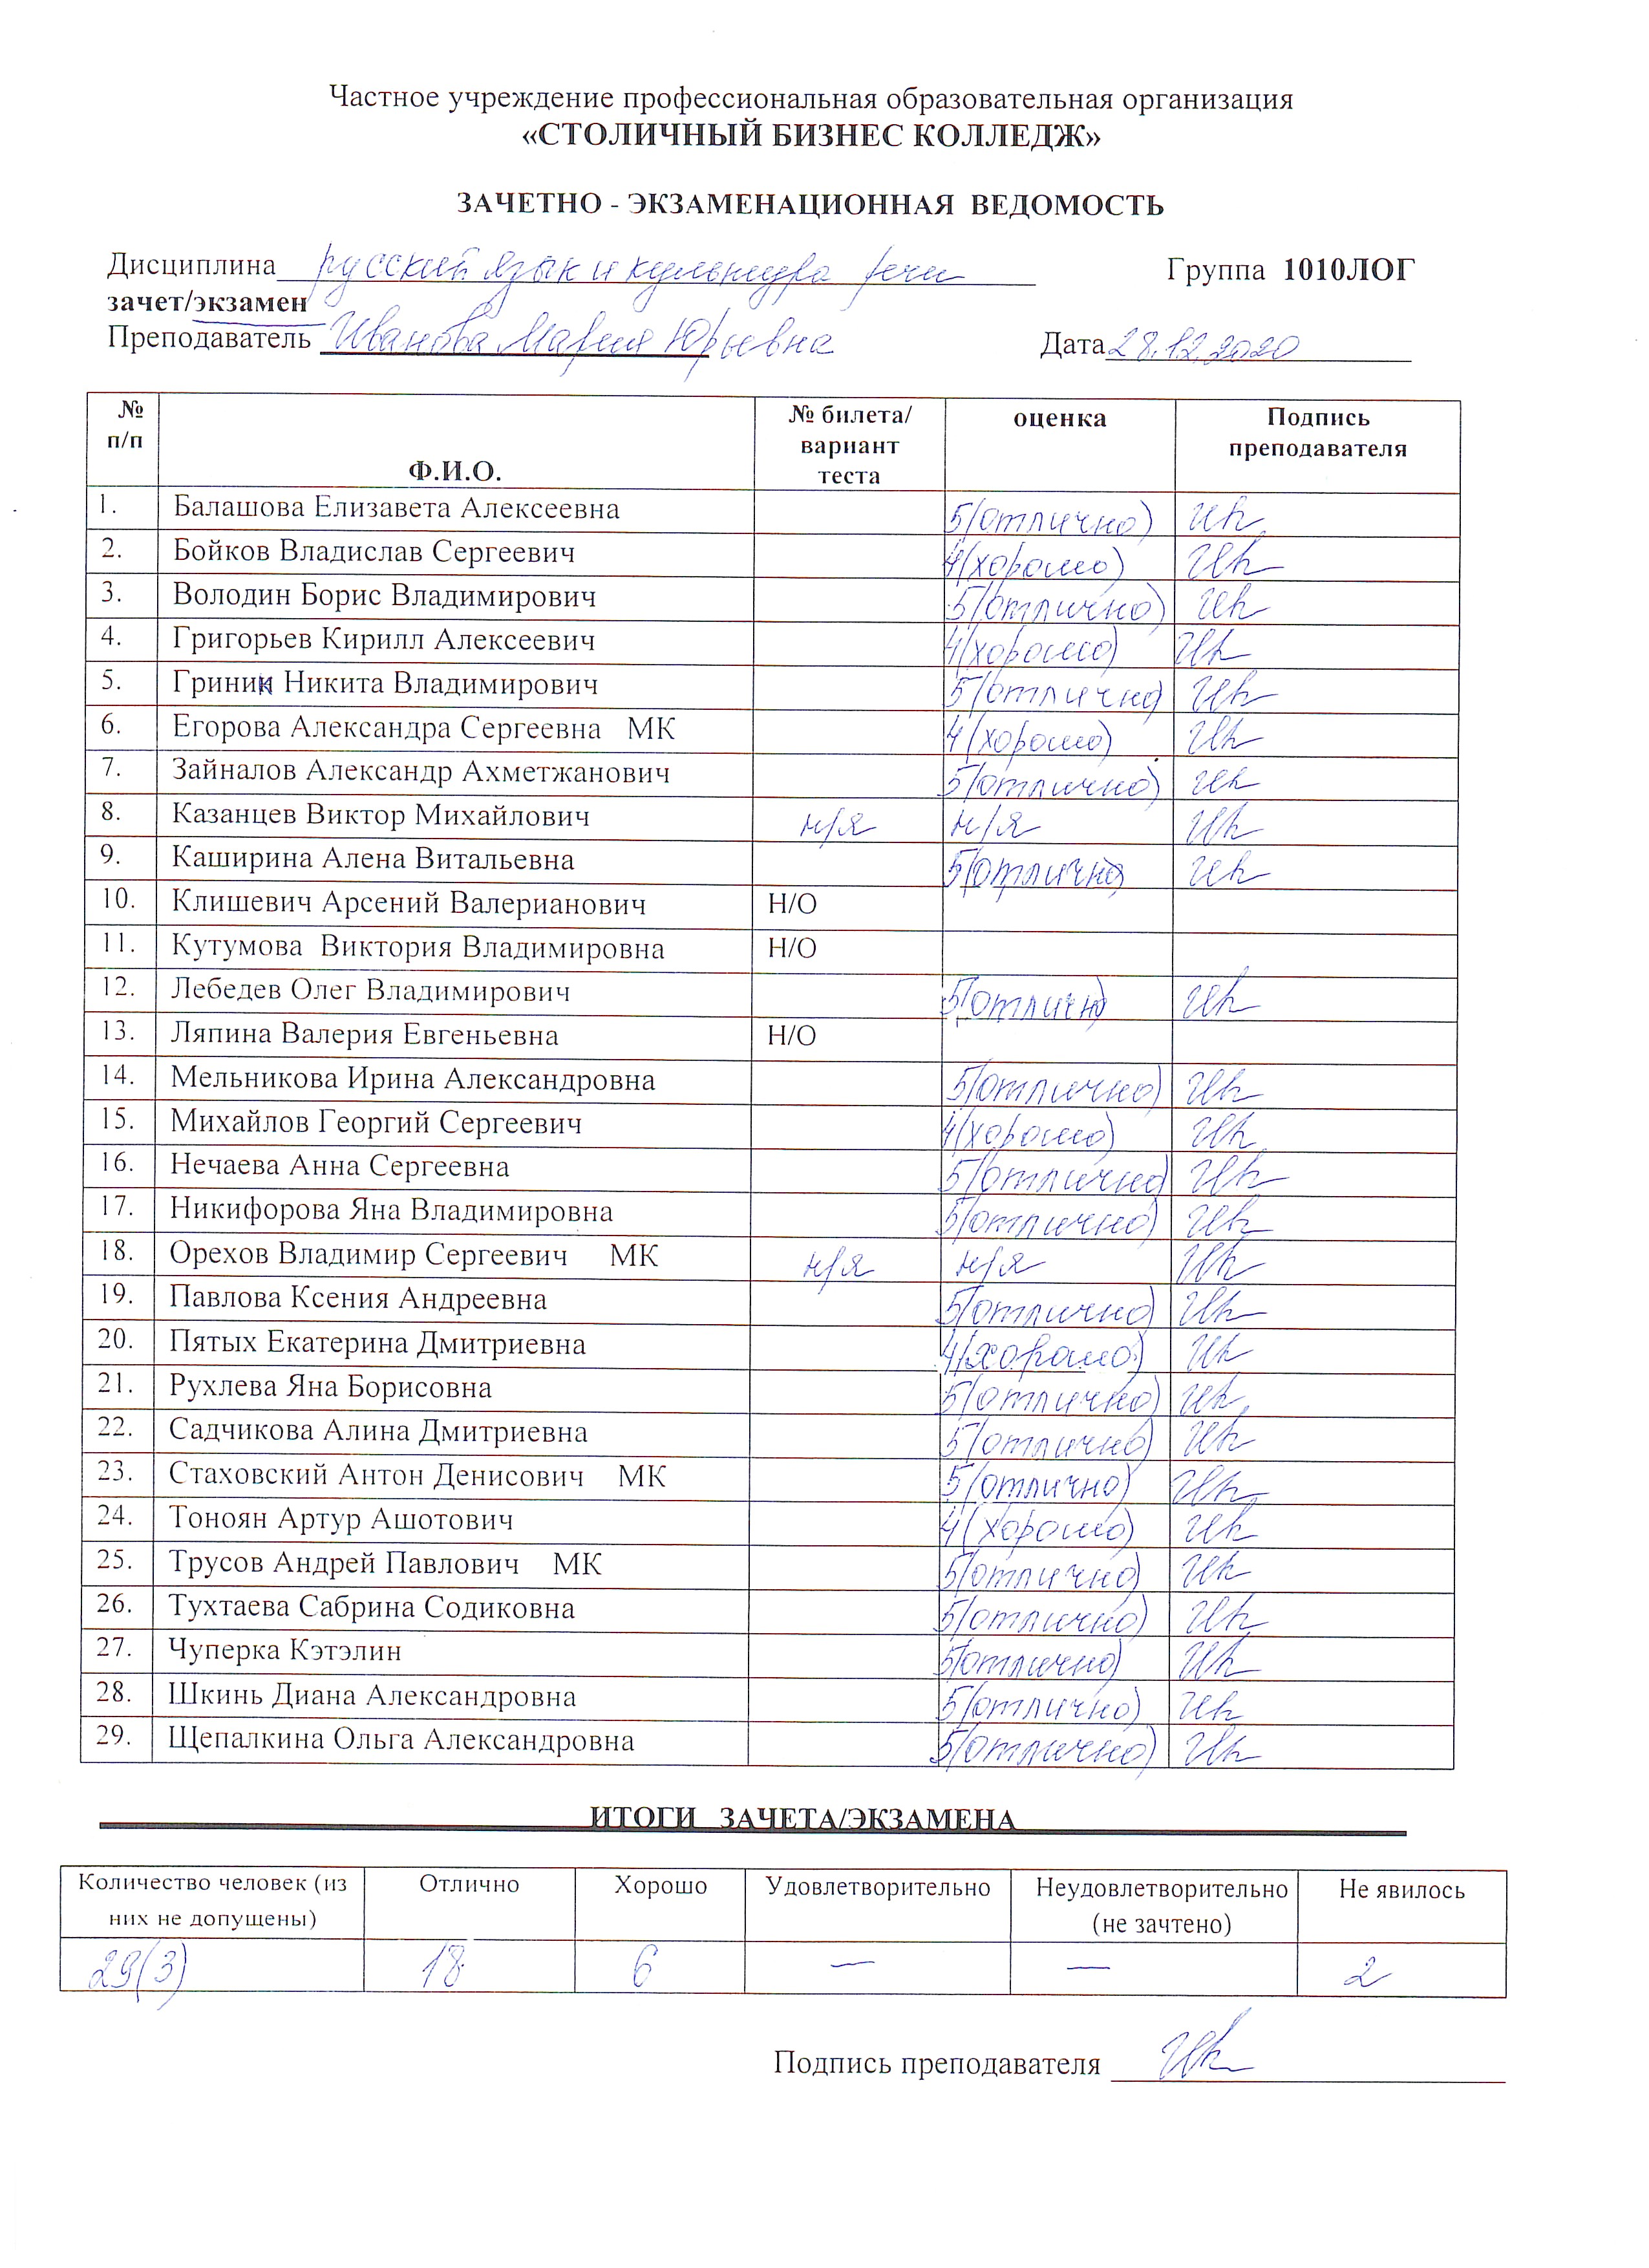 Частное учреждение профессиональная образовательная организация
«СТОЛИЧНЫЙ БИЗНЕС КОЛЛЕДЖ»
ЗАЧЕТНО - ЭКЗАМЕНАЦИОННАЯ ВЕДОМОСТЬ
Дисциплина русский язык и культура речи Группа 1010ЛОГ
зачет/экзамен
Преподаватель Иванова Мария Юрьевна Дата 28.12.2020
№ п/п Ф.И.О. № билета/ вариант теста оценка Подпись преподавателя
1. Балашова Елизавета Алексеевна 5(отлично)
2. Бойков Владислав Сергеевич 4(хорошо)
3. Володин Борис Владимирович 5(отлично)
4. Григорьев Кирилл Алексеевич 4(хорошо)
5. Гриник Никита Владимирович 5(отлично)
6. Егорова Александра Сергеевна МК 4(хорошо)
7. Зайналов Александр Ахметжанович 5(отлично)
8. Казанцев Виктор Михайлович н/я н/я
9. Каширина Алена Витальевна 5(отлично)
10. Клишевич Арсений Валерианович Н/О
11. Кутумова Виктория Владимировна Н/О
12. Лебедев Олег Владимирович 5(отлично)
13. Ляпина Валерия Евгеньевна Н/О
14. Мельникова Ирина Александровна 5(отлично)
15. Михайлов Георгий Сергеевич 4(хорошо)
16. Нечаева Анна Сергеевна 5(отлично)
17. Никифорова Яна Владимировна 5(отлично)
18. Орехов Владимир Сергеевич МК н/я н/я
19. Павлова Ксения Андреевна 5(отлично)
20. Пятых Екатерина Дмитриевна 4(хорошо)
21. Рухлева Яна Борисовна 5(отлично)
22. Садчикова Алина Дмитриевна 5(отлично)
23. Стаховский Антон Денисович МК 5(отлично)
24. Тоноян Артур Ашотович 4(хорошо)
25. Трусов Андрей Павлович МК 5(отлично)
26. Тухтаева Сабрина Содиковна 5(отлично)
27. Чуперка Кэтэлин 5(отлично)
28. Шкинь Диана Александровна 5(отлично)
29. Щепалкина Ольга Александровна 5(отлично)
ИТОГИ ЗАЧЕТА/ЭКЗАМЕНА
Количество человек (из них не допущены) Отлично Хорошо Удовлетворительно Неудовлетворительно (не зачтено) Не явилось
29(3) 18 6 — — 2
Подпись преподавателя